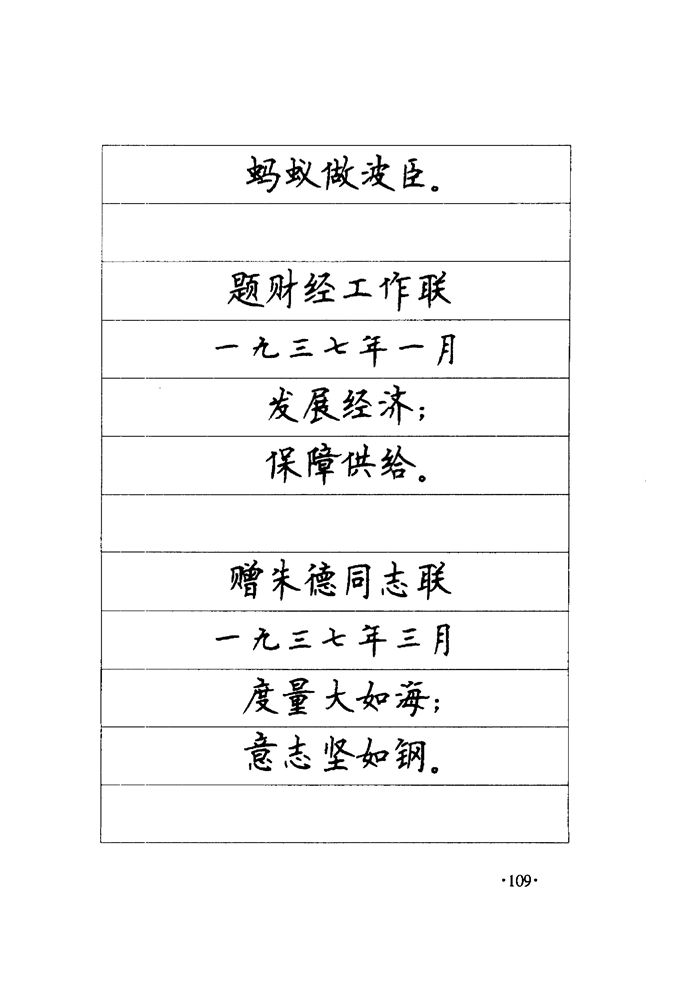 蚂蚁做波臣。
题财经工作联
一九三七年一月
发展经济；
保障供给。
赠朱德同志联
一九三七年三月
度量大如海；
意志坚如钢。
·109·